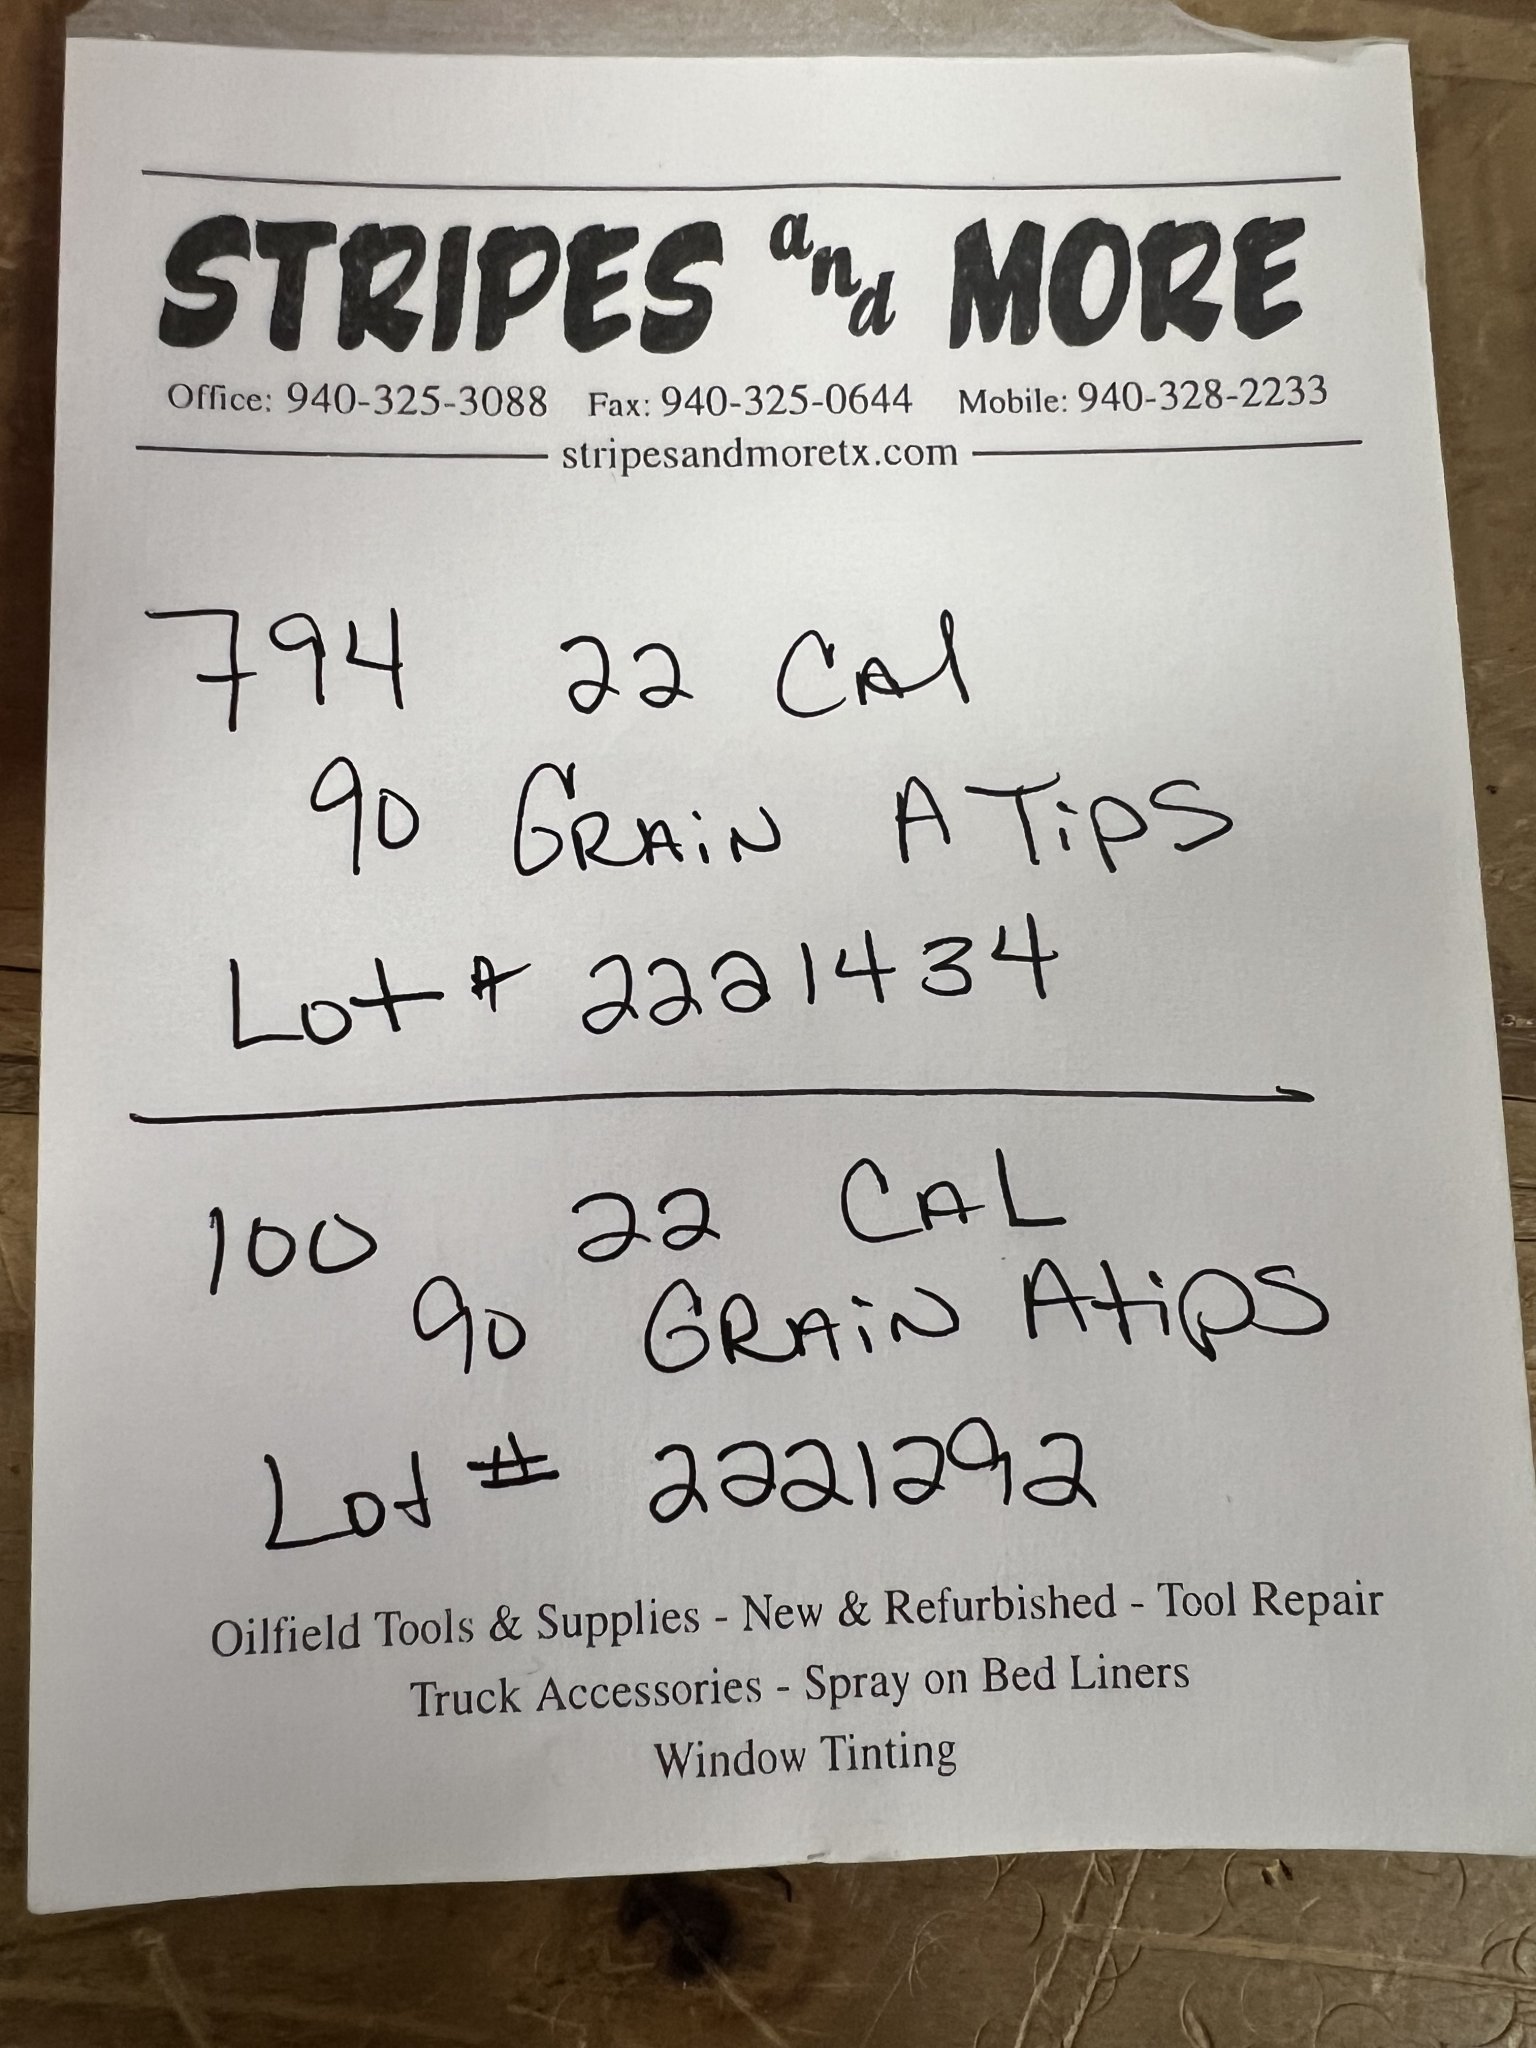 STRIPES and MORE
Office: 940-325-3088 Fax: 940-325-0644 Mobile: 940-328-2233
stripesandmoretx.com
794 22 Cal
90 GRAiN A TipS
Lot # 2221434
100 22 CAL
90 GRAiN AtipS
Lot # 2221292
Oilfield Tools & Supplies - New & Refurbished - Tool Repair
Truck Accessories - Spray on Bed Liners
Window Tinting